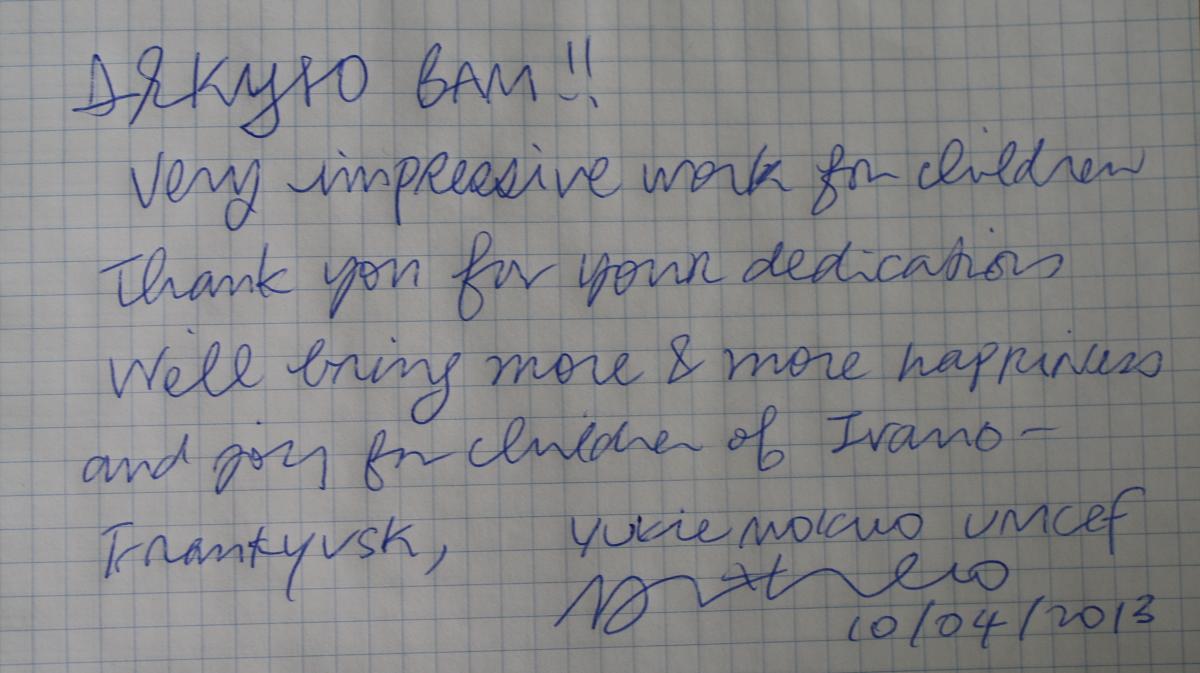 ДЯКУЮ ВАМ!!
Very impressive work for children
Thank you for your dedication
Well bring more & more happiness
and joy for children of Ivano-
Frankyvsk, Yukie Mokuo UNICEF
10/04/2013